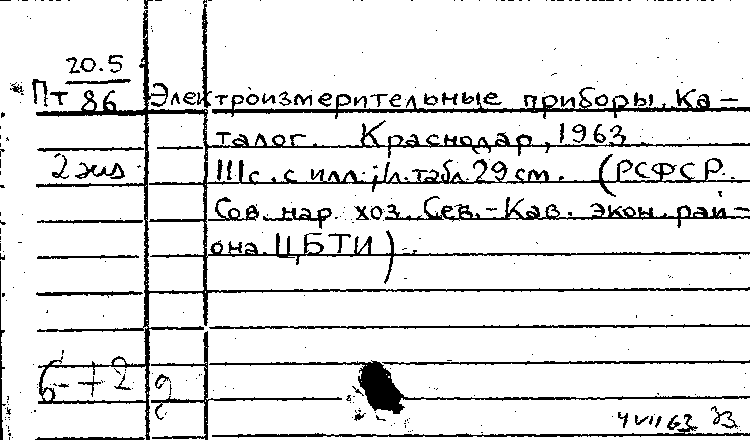 20.5
Пт 86 Электроизмерительные приборы. Ка-
талог. Краснодар, 1963.
2 экз. 111 с. с илл.; 1 л. табл. 29 см. (РСФСР.
Сов. нар. хоз. Сев.-Кав. экон. рай-
она. ЦБТИ).
6-+2
4 VII 63